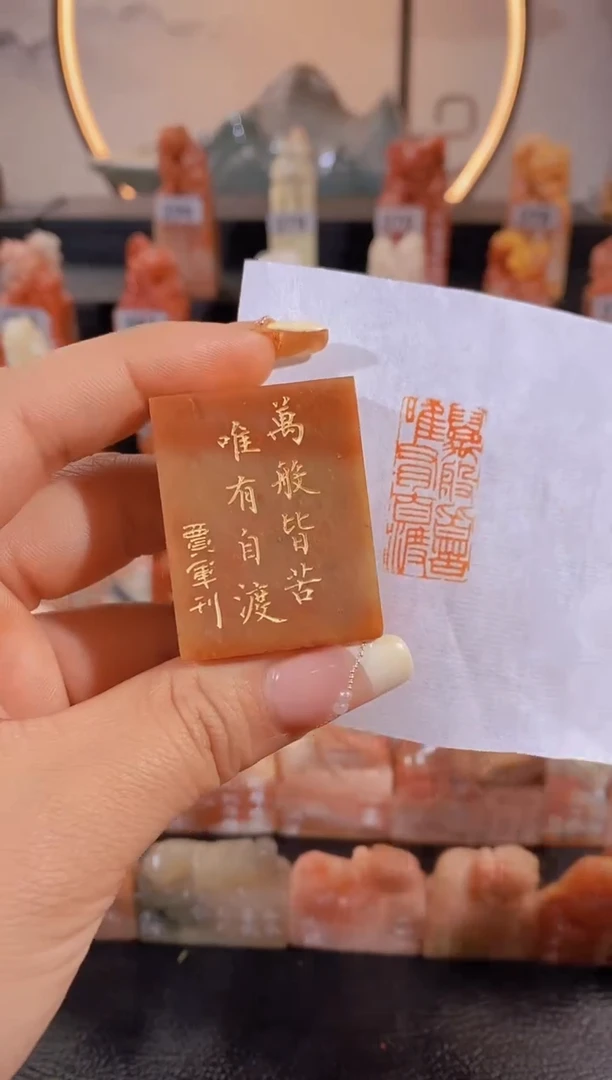 萬般皆苦
唯有自渡
賈軍刊
萬般皆苦
唯有自渡